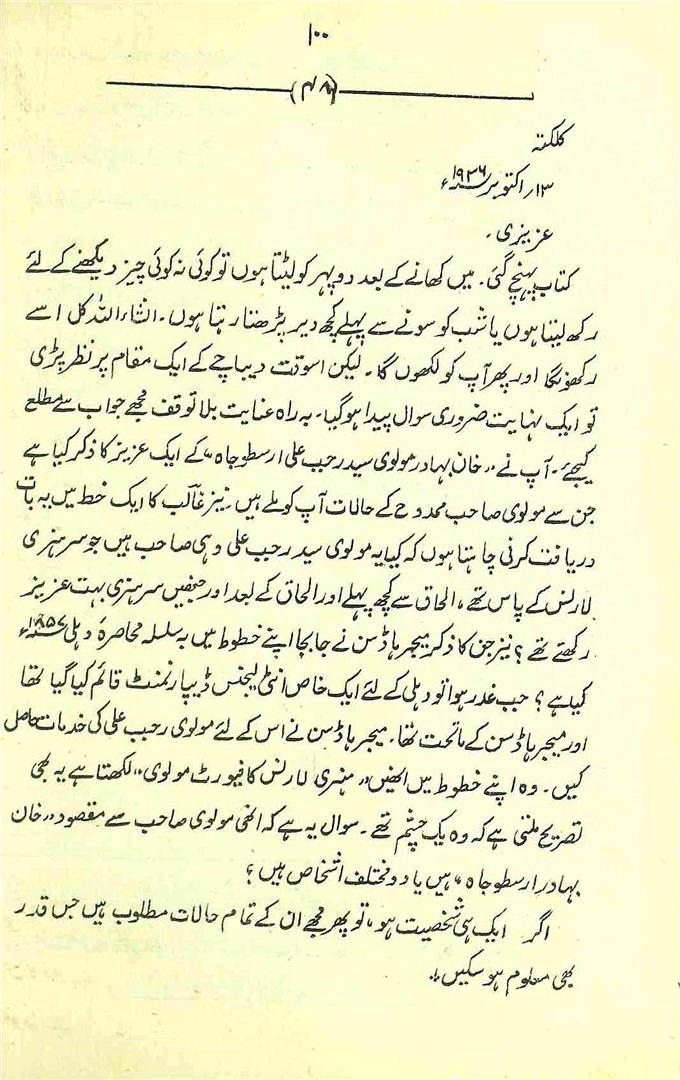 ۱۰۰
(۴۸)
کلکتہ
۱۳؍ اکتوبر ۱۹۳۶ء
عزیزی۔
کتاب پہنچ گئی۔ میں کھانے کے بعد دوپہر کو لیٹتا ہوں تو کوئی نہ کوئی چیز دیکھنے کے لئے
رکھ لیتا ہوں یا شب کو سونے سے پہلے کچھ دیر پڑھتا رہتا ہوں۔ انشاءاللہ کل اسے
رکھونگا اور پھر آپ کو لکھوں گا۔ لیکن اسوقت دیباچے کے ایک مقام پر نظر پڑی
تو ایک نہایت ضروری سوال پیدا ہوگیا۔ بہ راہ عنایت بلا توقف مجھے جواب سے مطلع
کیجئے۔ آپ نے "خان بہادر مولوی سید رجب علی ارسطو جاہ" کے ایک عزیز کا ذکر کیا ہے
جن سے مولوی صاحب ممدوح کے حالات آپ کو ملے ہیں نیز غالب کا ایک خط میں یہ بات
دریافت کرنی چاہتا ہوں کہ کیا یہ مولوی سید رجب علی وہی صاحب ہیں جو سر ہنری
لارنس کے پاس تھے، الحاق سے کچھ پہلے اور الحاق کے بعد اور جنھیں سر ہنری بہت عزیز
رکھتے تھے؟ نیز جن کا ذکر میجر ہاڈسن نے جابجا اپنے خطوط میں بہ سلسلہ محاصرۂ دہلی ۱۸۵۷ء
کیا ہے؟ جب غدر ہوا تو دہلی کے لئے ایک خاص انٹی لیجنس ڈیپارٹمنٹ قائم کیا گیا تھا
اور میجر ہاڈسن کے ماتحت تھا۔ میجر ہاڈسن نے اس کے لئے مولوی رجب علی کی خدمات حاصل
کیں۔ وہ اپنے خطوط میں انھیں "ہنری لارنس کا فیورٹ مولوی" لکھتا ہے یہ بھی
تصریح ملتی ہے کہ وہ یک چشم تھے۔ سوال یہ ہے کہ انھی مولوی صاحب سے مقصود "خان
بہادر ارسطو جاہ" ہیں یا دو مختلف اشخاص ہیں؟
اگر ایک ہی شخصیت ہو، تو پھر مجھے ان کے تمام حالات مطلوب ہیں جس قدر
بھی معلوم ہو سکیں۔